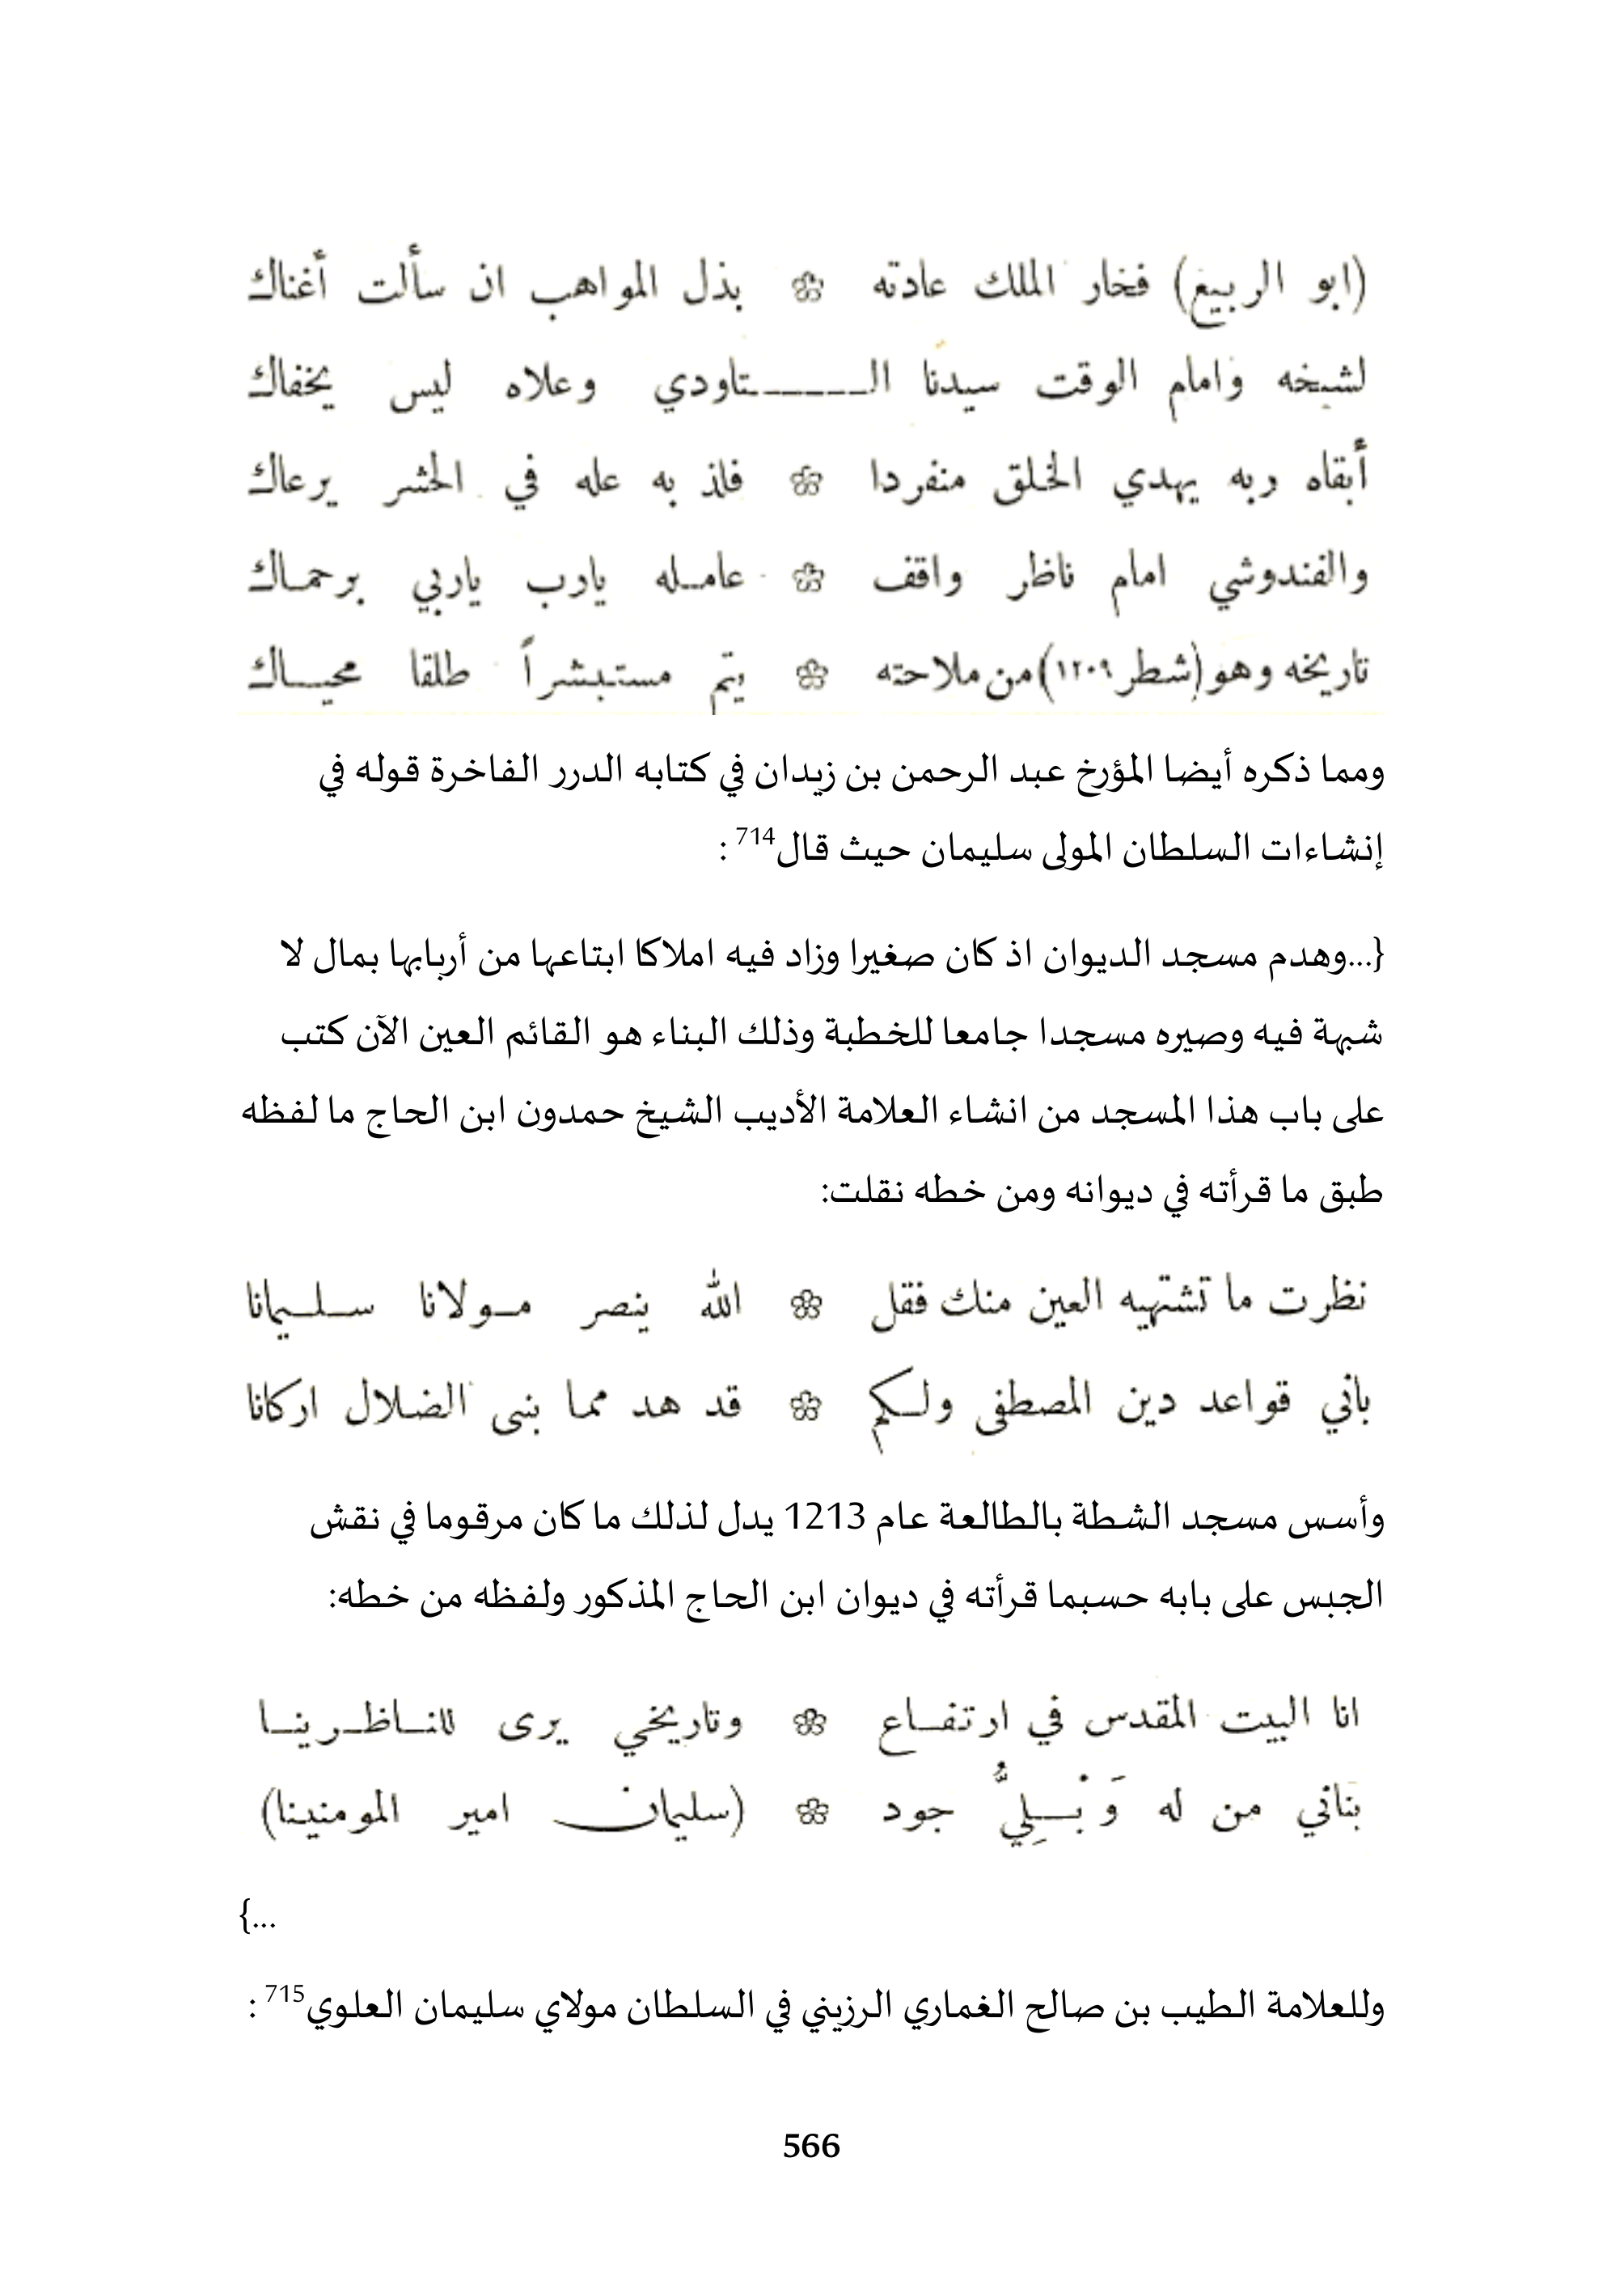 (ابو الربيع) فخار الملك عادته ❀ بذل المواهب ان سألت أغناك
لشيخه وامام الوقت سيدنا الـــــــتاودي وعلاه ليس يخفاك
أبقاه ربه يهدي الخلق منفردا ❀ فلذ به عله في الحشر يرعاك
والفندوشي امام ناظر واقف ❀ عامـله يارب ياربي برحمـاك
تاريخه وهو (شطر ١٢٠٩) من ملاحته ❀ يتم مستبشراً طلقا محيـــاك
ومما ذكره أيضا المؤرخ عبد الرحمن بن زيدان في كتابه الدرر الفاخرة قوله في
إنشاءات السلطان المولى سليمان حيث قال714 :
{...وهدم مسجد الديوان اذ كان صغيرا وزاد فيه املاكا ابتاعها من أربابها بمال لا
شبهة فيه وصيره مسجدا جامعا للخطبة وذلك البناء هو القائم العين الآن كتب
على باب هذا المسجد من انشاء العلامة الأديب الشيخ حمدون ابن الحاج ما لفظه
طبق ما قرأته في ديوانه ومن خطه نقلت:
نظرت ما تشتهيه العين منك فقل ❀ الله ينصر مـولانا سـلـيمانا
باني قواعد دين المصطفى ولـكم ❀ قد هد مما بنى الضلال اركانا
وأسس مسجد الشطة بالطالعة عام 1213 يدل لذلك ما كان مرقوما في نقش
الجبس على بابه حسبما قرأته في ديوان ابن الحاج المذكور ولفظه من خطه:
انا البيت المقدس في ارتفـاع ❀ وتاريخي يرى للنـاظـرينـا
بناني من له وَبْـلِيُّ جود ❀ (سليمان امير المومنينا)
...}
وللعلامة الطيب بن صالح الغماري الرزيني في السلطان مولاي سليمان العلوي715 :
566